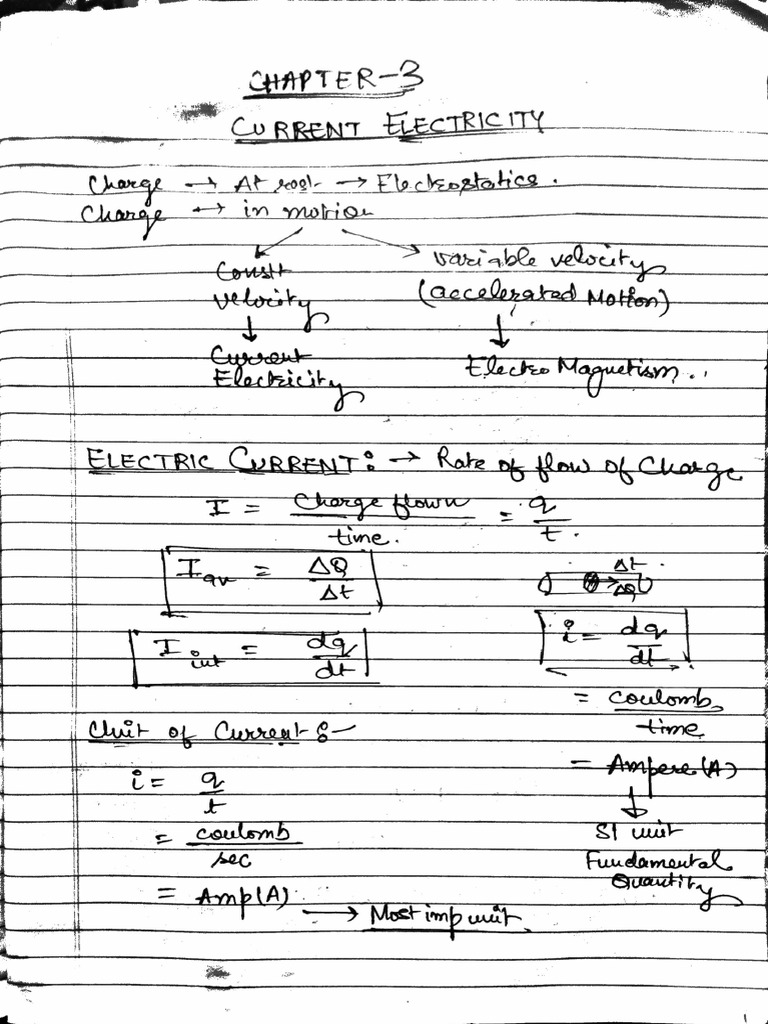 CHAPTER-3
CURRENT ELECTRICITY
Charge → At rest → Electrostatics.
Charge → in motion
Constt velocity
↓
Current Electricity
variable velocity
(accelerated Motion)
↓
Electro Magnetism.
ELECTRIC CURRENT: → Rate of flow of Charge
I = Charge flown / time. = q / t.
I av = ΔQ / Δt
Δt
ΔQ
I int = dq / dt
i = dq / dt
= coulomb / time
= Ampere (A)
↓
SI unit
Fundamental
Quantity
Unit of Current :-
i = q / t
= coulomb / sec
= Amp (A)
→ Most imp unit.